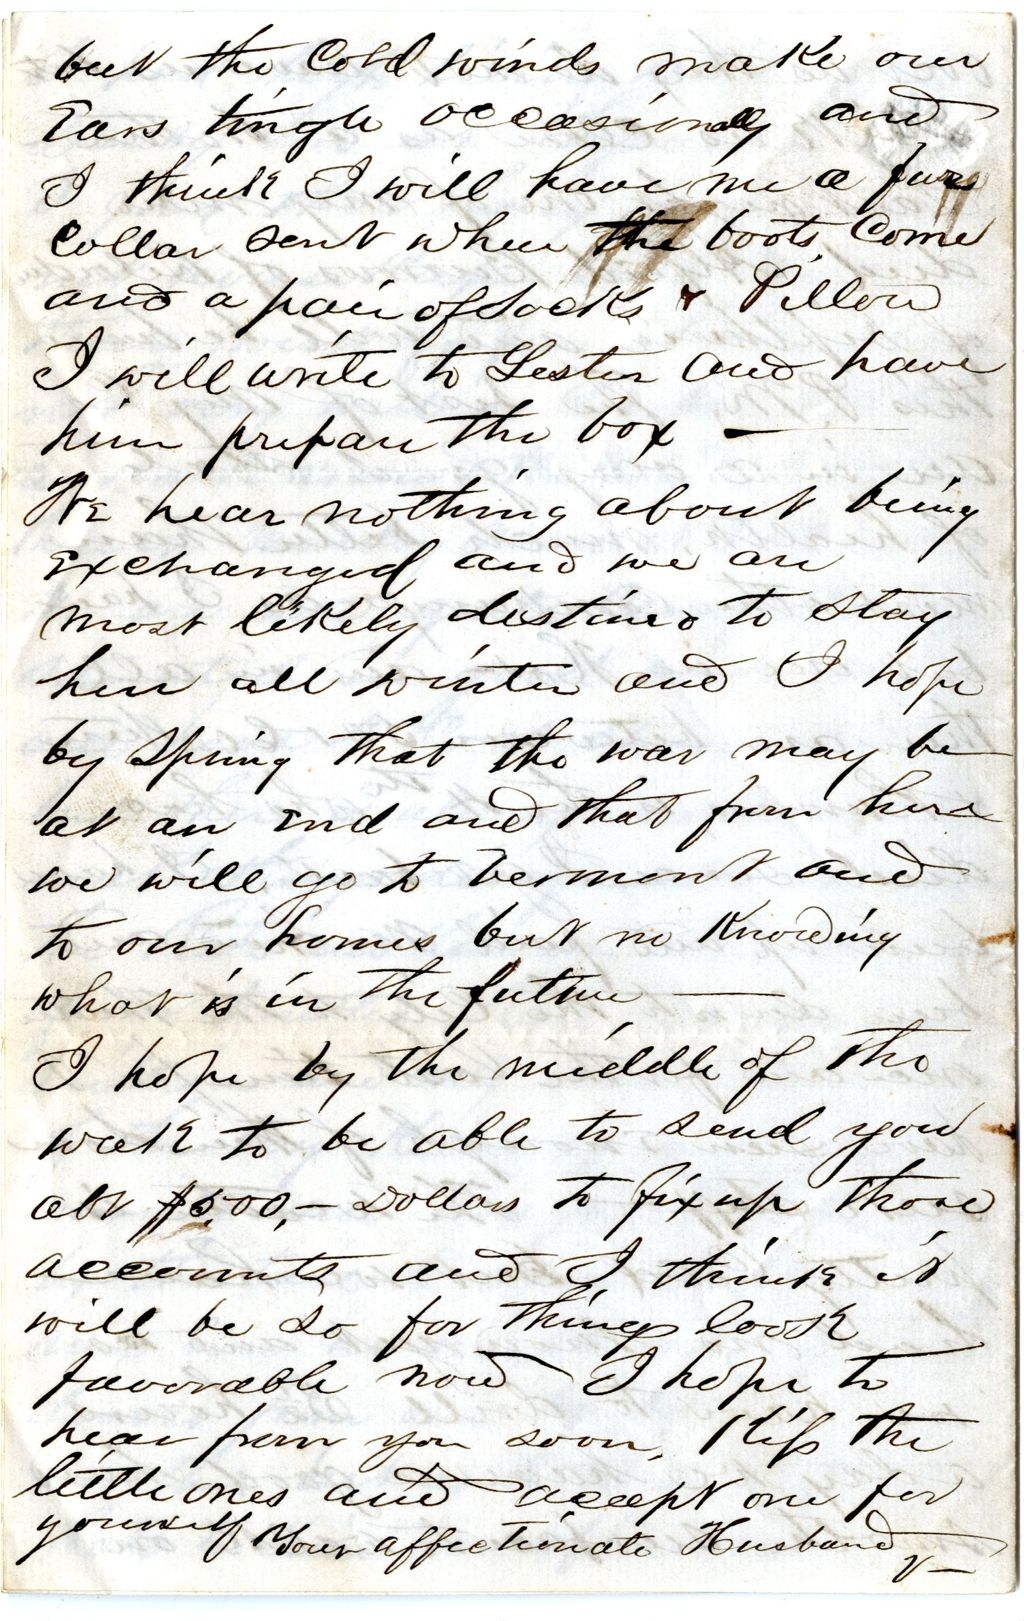 but the Cold winds make our
Ears tingle occasionally and
I think I will have me a fur
Collar sent when the boots Come
and a pair of Socks & Pillow
I will write to Lester and have
him prepare the box —
We hear nothing about being
Exchanged and we are
most likely destined to stay
here all winter and I hope
by Spring that the war may be
at an End and that from here
we will go to Vermont and
to our homes but no Knowing
what is in the future —
I hope by the middle of the
week to be able to send you
abt $500,— Dollars to fix up those
accounts and I think it
will be so for things look
favorable now I hope to
hear from you soon, Kiss the
little ones and accept one for
yourself Your affectionate Husband
V—